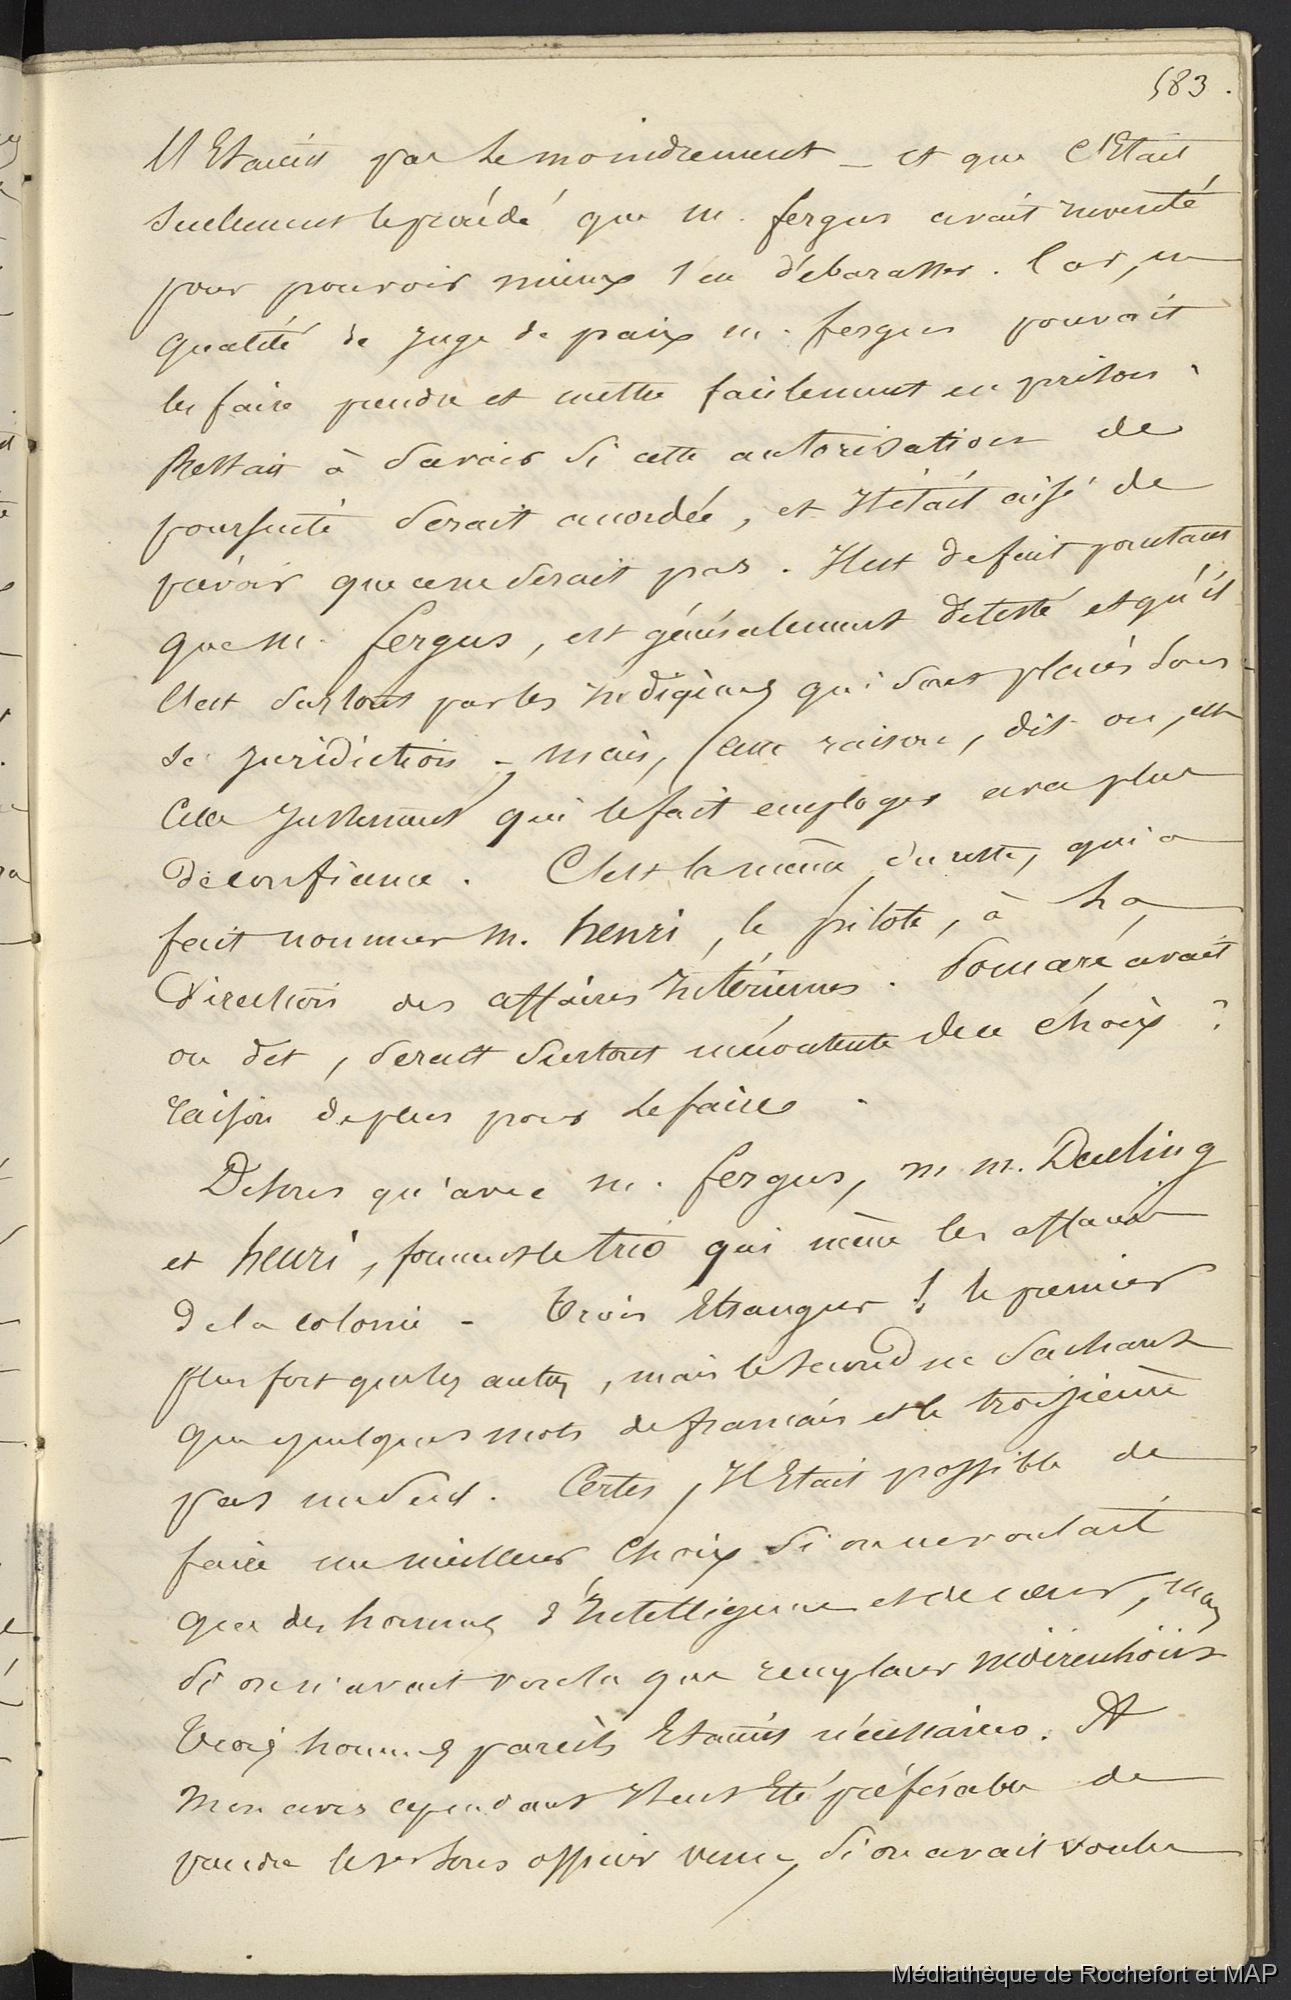 583.
n'Etaient pas le moindrement _ et que c'Etait
seulement le procédé que m. fergus avait inventé
pour pouvoir mieux s'en débarasser. Car, en
qualité de juge de paix m. fergus pouvait
les faire prendre et mettre facilement en prison.
Restait à savoir si cette autorisation de
poursuite serait accordée, et il était aisé de
prévoir que ce ne serait pas. Il est de fait pourtant
que m. fergus, est généralement détesté et qu'il
l'est surtout par les indigènes qui sont placés sous
sa juridiction _ mais, cette raison, dit-on, est
celle justement qui le fait employer avec plus
de confiance. C'est la même du reste, qui a
fait nommer m. henri, le pilote, à la
Direction des affaires intérieures. Pomaré avait
on dit, serait surtout mécontente de ce choix ?
raison de plus pour le faire.
Desorte qu'avec m. fergus, m m. Darling
et henri, forment le trio qui mène les affaires
de la colonie _ Trois Etrangers ! le premier
plus fort que les autres, mais le second ne sachant
que quelques mots de francais et le troisième
pas un seul. Certes, il Etait possible de
faire un meilleur choix si on ne voulait
que des hommes d'intelligence et de coeur, mais
si on n'avait voulu que remplacer
trois hommes pareils Etaient nécessaires. A
mon avis cependant il eut Eté préférable de
prendre le sous officier venu, si on avait voulu
Médiathèque de Rochefort et MAP